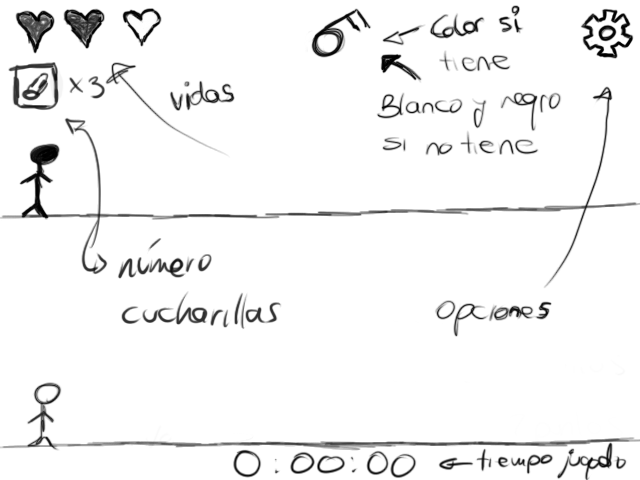 Color si
tiene
x3
vidas
Blanco y negro
si no tiene
número
cucharillas
opciones
0:00:00
tiempo jugado